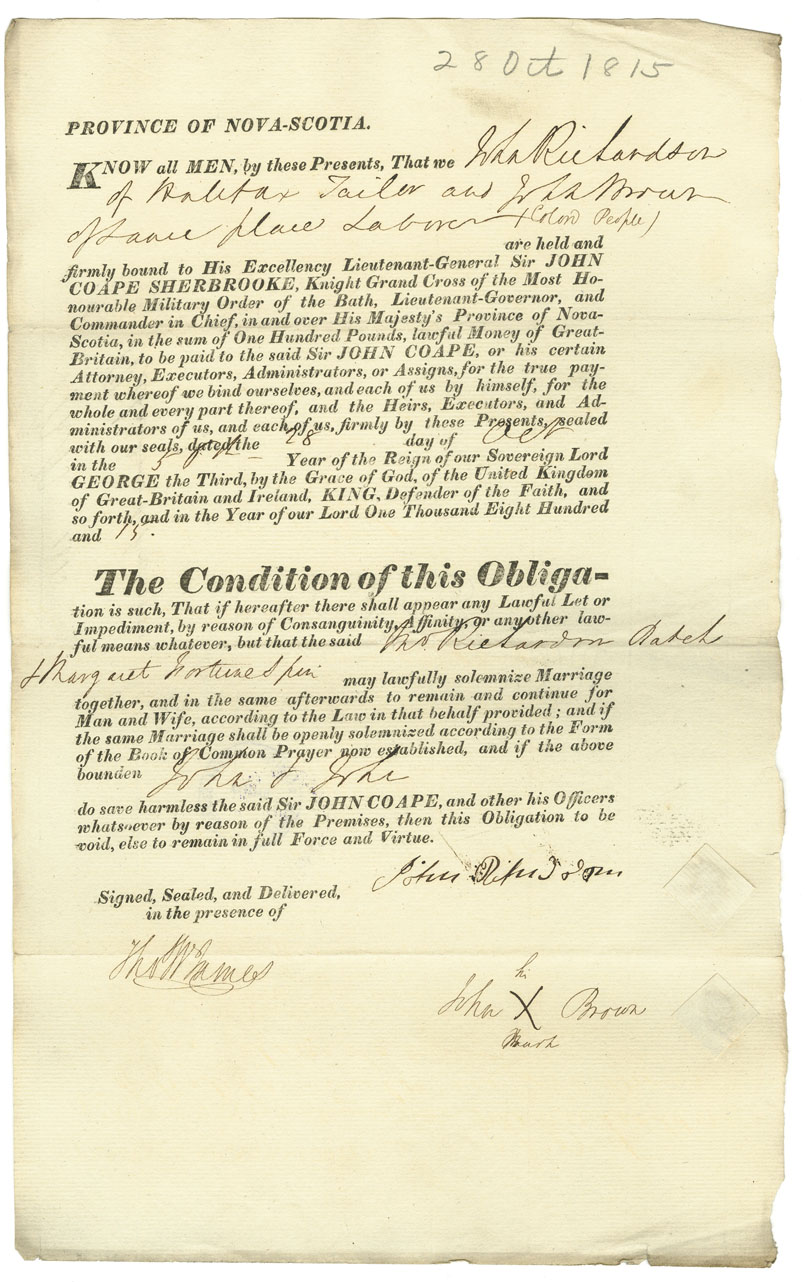 28 Oct 1815
PROVINCE OF NOVA-SCOTIA.
KNOW all MEN, by these Presents, That we John Richardson
of Halifax Tailor and John Brown
of same place Laborer (Colord People)
are held and
firmly bound to His Excellency Lieutenant-General Sir JOHN
COAPE SHERBROOKE, Knight Grand Cross of the Most Ho-
nourable Military Order of the Bath, Lieutenant-Governor, and
Commander in Chief, in and over His Majesty's Province of Nova-
Scotia, in the sum of One Hundred Pounds, lawful Money of Great-
Britain, to be paid to the said Sir JOHN COAPE, or his certain
Attorney, Executors, Administrators, or Assigns, for the true pay-
ment whereof we bind ourselves, and each of us by himself, for the
whole and every part thereof, and the Heirs, Executors, and Ad-
ministrators of us, and each of us, firmly by these Presents, sealed
with our seals, dated the 28 day of Oct
in the Year of the Reign of our Sovereign Lord
GEORGE the Third, by the Grace of God, of the United Kingdom
of Great-Britain and Ireland, KING, Defender of the Faith, and
so forth, and in the Year of our Lord One Thousand Eight Hundred
and 15.
The Condition of this Obliga-
tion is such, That if hereafter there shall appear any Lawful Let or
Impediment, by reason of Consanguinity, Affinity, or any other law-
ful means whatever, but that the said Jno. Richardson Batch
& Margaret Fortune Spin may lawfully solemnize Marriage
together, and in the same afterwards to remain and continue for
Man and Wife, according to the Law in that behalf provided; and if
the same Marriage shall be openly solemnized according to the Form
of the Book of Common Prayer now established, and if the above
bounden John & John
do save harmless the said Sir JOHN COAPE, and other his Officers
whatsoever by reason of the Premises, then this Obligation to be
void, else to remain in full Force and Virtue.
John
Signed, Sealed, and Delivered,
in the presence of
Tho W James
his
John X Brown
Mark